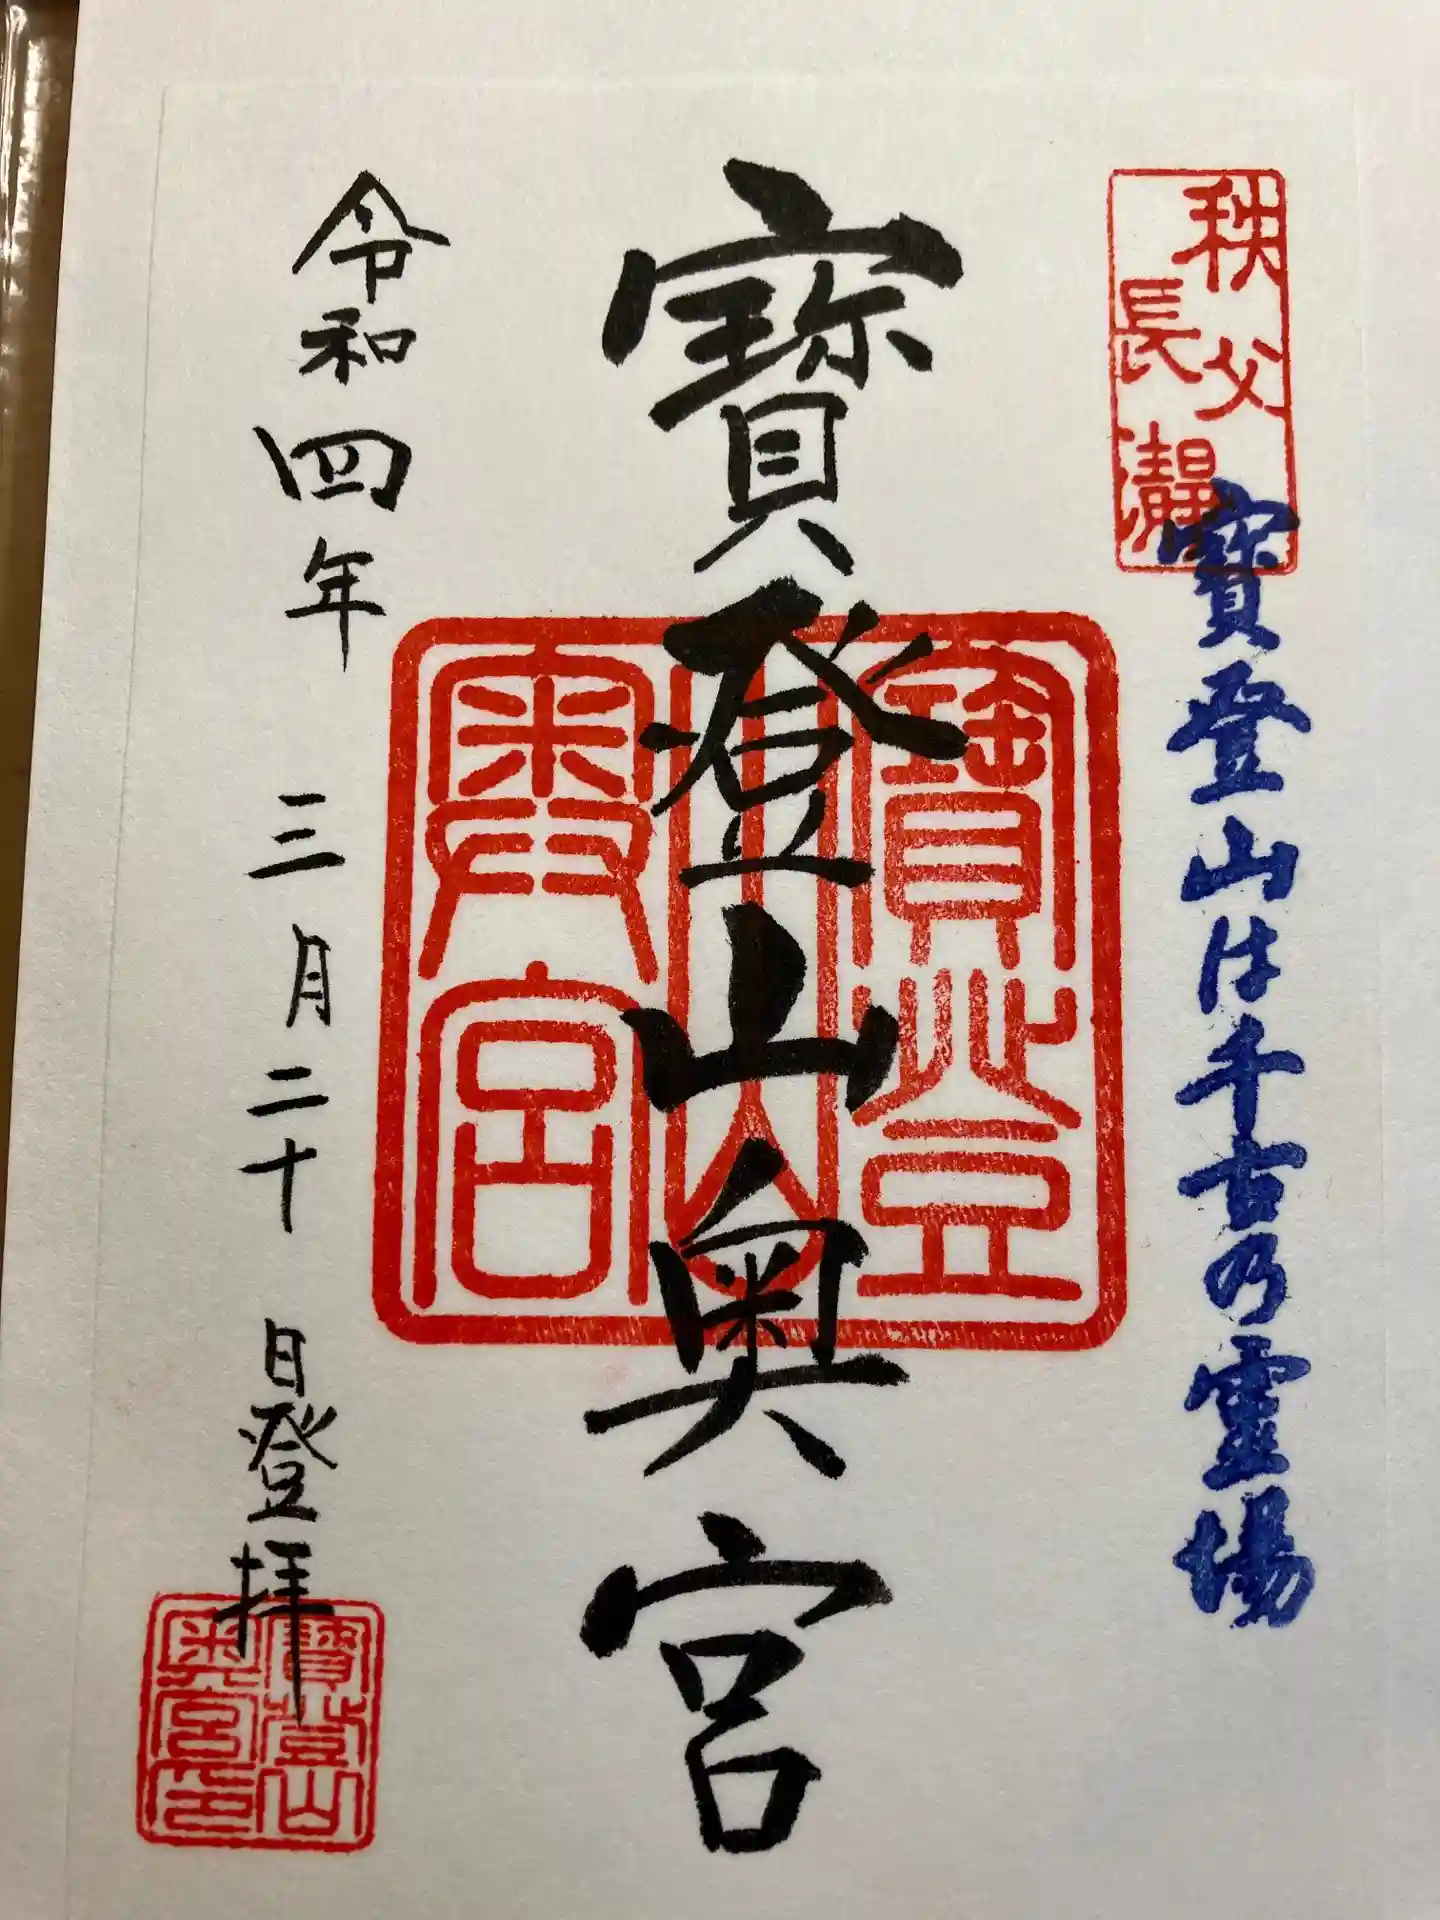 秩父
長瀞
寶登山は千古乃霊場
寶登山奥宮
寶登
山
奥宮
令和四年 三月二十 日登拝
寶登山
奥宮印